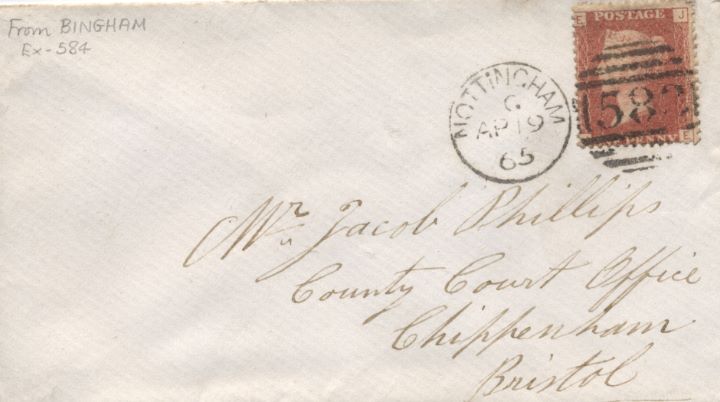 From BINGHAM
Ex-584
E POSTAGE J
583
PENNY E
NOTTINGHAM
G
AP 19
65
Mr Jacob Phillips
County Court Office
Chippenham
Bristol